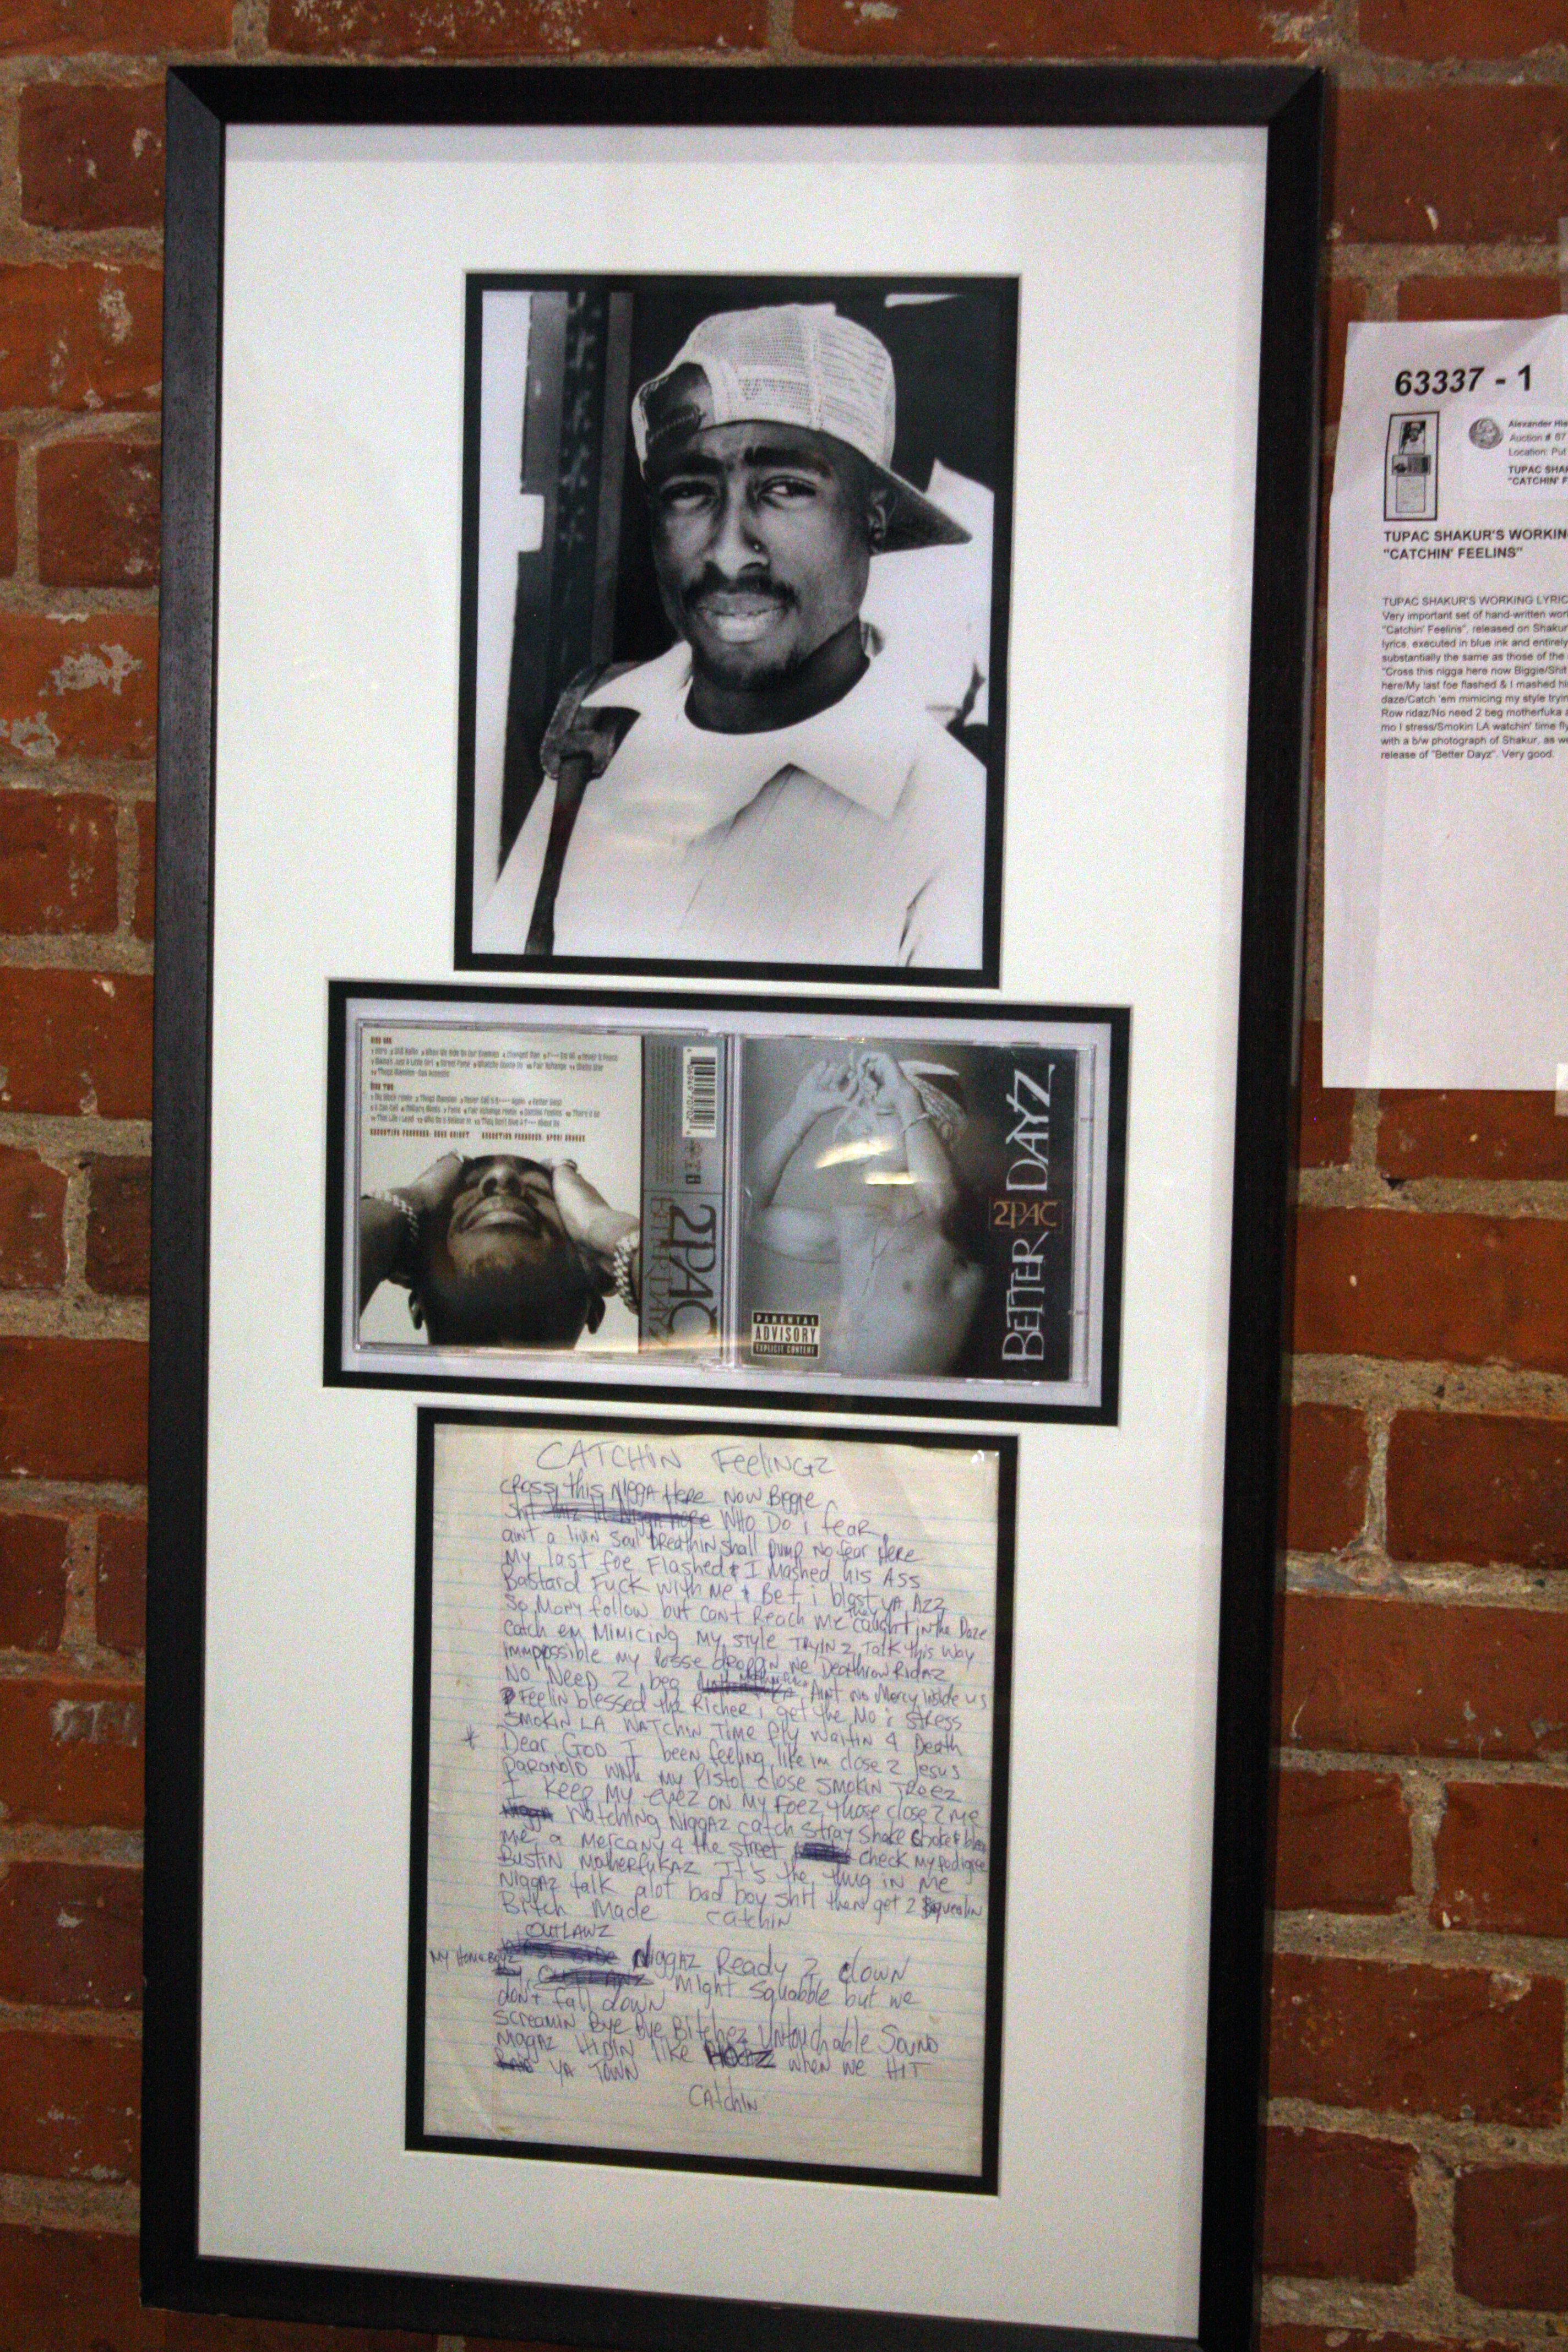 63337 - 1
Alexander His
Auction # 87
Location: Put
TUPAC SHA
"CATCHIN' F
TUPAC SHAKUR'S WORKIN
"CATCHIN' FEELINS"
TUPAC SHAKUR'S WORKING LYRIC
Very important set of hand-written wor
"Catchin' Feelins", released on Shakur
lyrics, executed in blue ink and entirely
substantially the same as those of the
"Cross this nigga here now Biggie/Shit
here/My last foe flashed & I mashed hi
daze/Catch 'em mimicing my style tryin
Row ridaz/No need 2 beg motherfuka a
mo I stress/Smokin LA watchin' time fly
with a b/w photograph of Shakur, as we
release of "Better Dayz". Very good.
2PAC
BETTER DAYZ
PARENTAL
ADVISORY
EXPLICIT CONTENT
BETTER DAYZ
2PAC
CATCHIN FeeliNGZ
CROSS this NIGGA HeRe NOW BIGGIE
Shit WHO DO i feaR
ain't a livin soul breathin shall pump No fear HeRe
My last foe Flashed & I Mashed his ASS
Bastard Fuck with Me & Bet i blast yA AZZ
So Many follow but cant Reach Me they caught in the Daze
Catch em MIMICING My STYLE TRYIN 2 TAlk this way
Immpossible my Posse droppin we Deathrow RidAZ
No Need 2 beg AINT No Mercy inside us
Feelin blessed the Richer i get the Mo i stress
SMOKIN LA WATCHIN TIME fly Waitin 4 Death
* Dear GOD I been feeling like im close 2 Jesus
PARANOID With my Pistol close SMOKIN TReez
I Keep My eyez ON My FOez those close 2 Me
Watching NIGGAZ catch stray shake choke & bleed
Me a Mercany 4 the street check My Pedigree
Bustin MotherfukAZ It's the thug in Me
NIGGAZ talk alot bad boy shit then get 2 Squealin
Bitch Made Catchin
OUTLAWZ
NIGGAZ Ready 2 clown
My Homeboyz Might Squabble but we
don't fall down
Screamin Bye Bye Bitchez Untouchable SOUND
NIGGAZ HIDIN like when we HIT
YA TOWN
CAtchIN